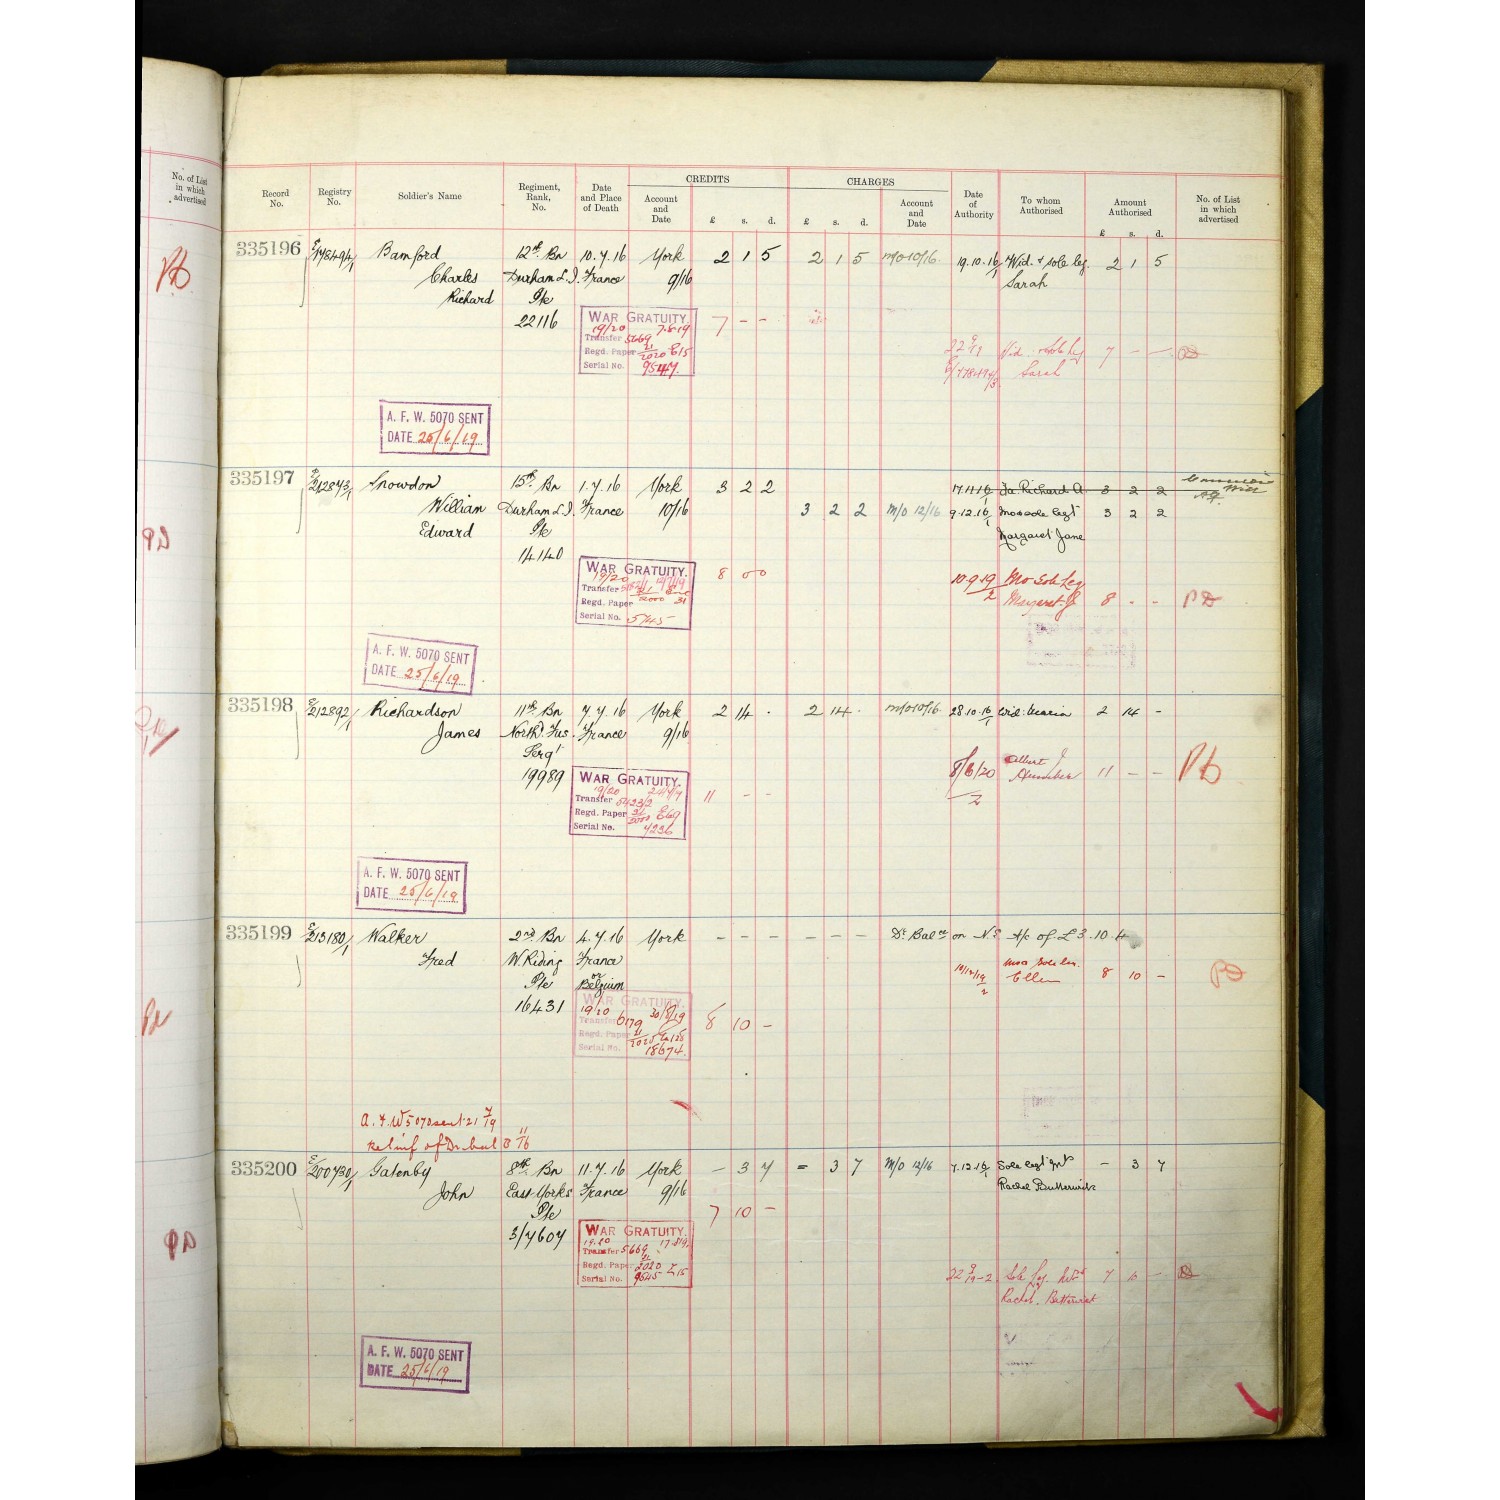 No. of List
in which
advertised
CREDITS
CHARGES
Record
No.
Registry
No.
Soldier's Name
Regiment,
Rank,
No.
Date
and Place
of Death
Account
and
Date
£ s. d.
£ s. d.
Account
and
Date
Date
of
Authority
To whom
Authorised
Amount
Authorised
£ s. d.
No. of List
in which
advertised
335196 E/178494/1 Bamford 12th Bn 10.7.16 York 2 1 5 2 1 5 M/O 10/16 19.10.16/1 Wid. & sole leg. 2 1 5
Charles Durham L.I. France 9/16 Sarah
Richard Pte
22116
WAR GRATUITY. 7 - -
19/20 7.8.19
Transfer 5669
Regd. Paper 21/2020 E15
Serial No. 9547.
22 9/19 Wid. & Sole Leg 7 - -
E/178494/3 Sarah
A. F. W. 5070 SENT
DATE 25/6/19
335197 E/212873/1 Snowdon 15th Bn 1.7.16 York 3 2 2 17.11.16/1 Fa. Richard A. 3 2 2
William Durham L.I. France 10/16 3 2 2 M/O 12/16 9.12.16/1 Mo sole legt 3 2 2
Edward Pte Margaret Jane
14140
WAR GRATUITY. 8 0 0
19/20
Transfer
Regd. Paper 31
Serial No. 5745
10.9.19/2 Mo Sole Leg
Margaret J. 8 - - PD
A. F. W. 5070 SENT
DATE 25/6/19
335198 E/212892/1 Richardson 11th Bn 7.7.16 York 2 14 . 2 14 . M/O 10/16 28.10.16/1 Wid: Maria 2 14 -
James North'd. Fus. France 9/16
Sergt
19989
WAR GRATUITY. 11 - -
19/20
Transfer 5423/2
Regd. Paper E69
Serial No. 4236
8/6/20 Albert J. 11 - - PD
2
A. F. W. 5070 SENT
DATE 25/6/19
335199 E/213180/1 Walker 2nd Bn 4.7.16 York - - - - - - Dr Balce on N.E. A/c of £3.10.4
Fred W. Riding France
Pte or
Belgium
16431
WAR GRATUITY. 8 10 -
19/20 30/8/19
Transfer 6179
Regd. Paper 21/2020 E128
Serial No. 18674.
10/12/19/2 Mo Sole Leg. 8 10 - PD
Ellen
A.F.W 5070 sent 21 7/19
Relief of Dr. bal 8 11/16
335200 E/200730/1 Gatenby 8th Bn 11.7.16 York - 3 7 = 3 7 M/O 12/16 7.12.16/1 Sole legt Gnt - 3 7
John East Yorks France 9/16 Rachel Butterwick
Pte 7 10 -
3/7607
WAR GRATUITY.
19.20 17.8.19
Transfer 5669
Regd. Paper 21/2020 E15
Serial No. 9545
22 9/19-2 Sole Leg. 7 10 -
Rachel. Butterwick
A. F. W. 5070 SENT
DATE 25/6/19